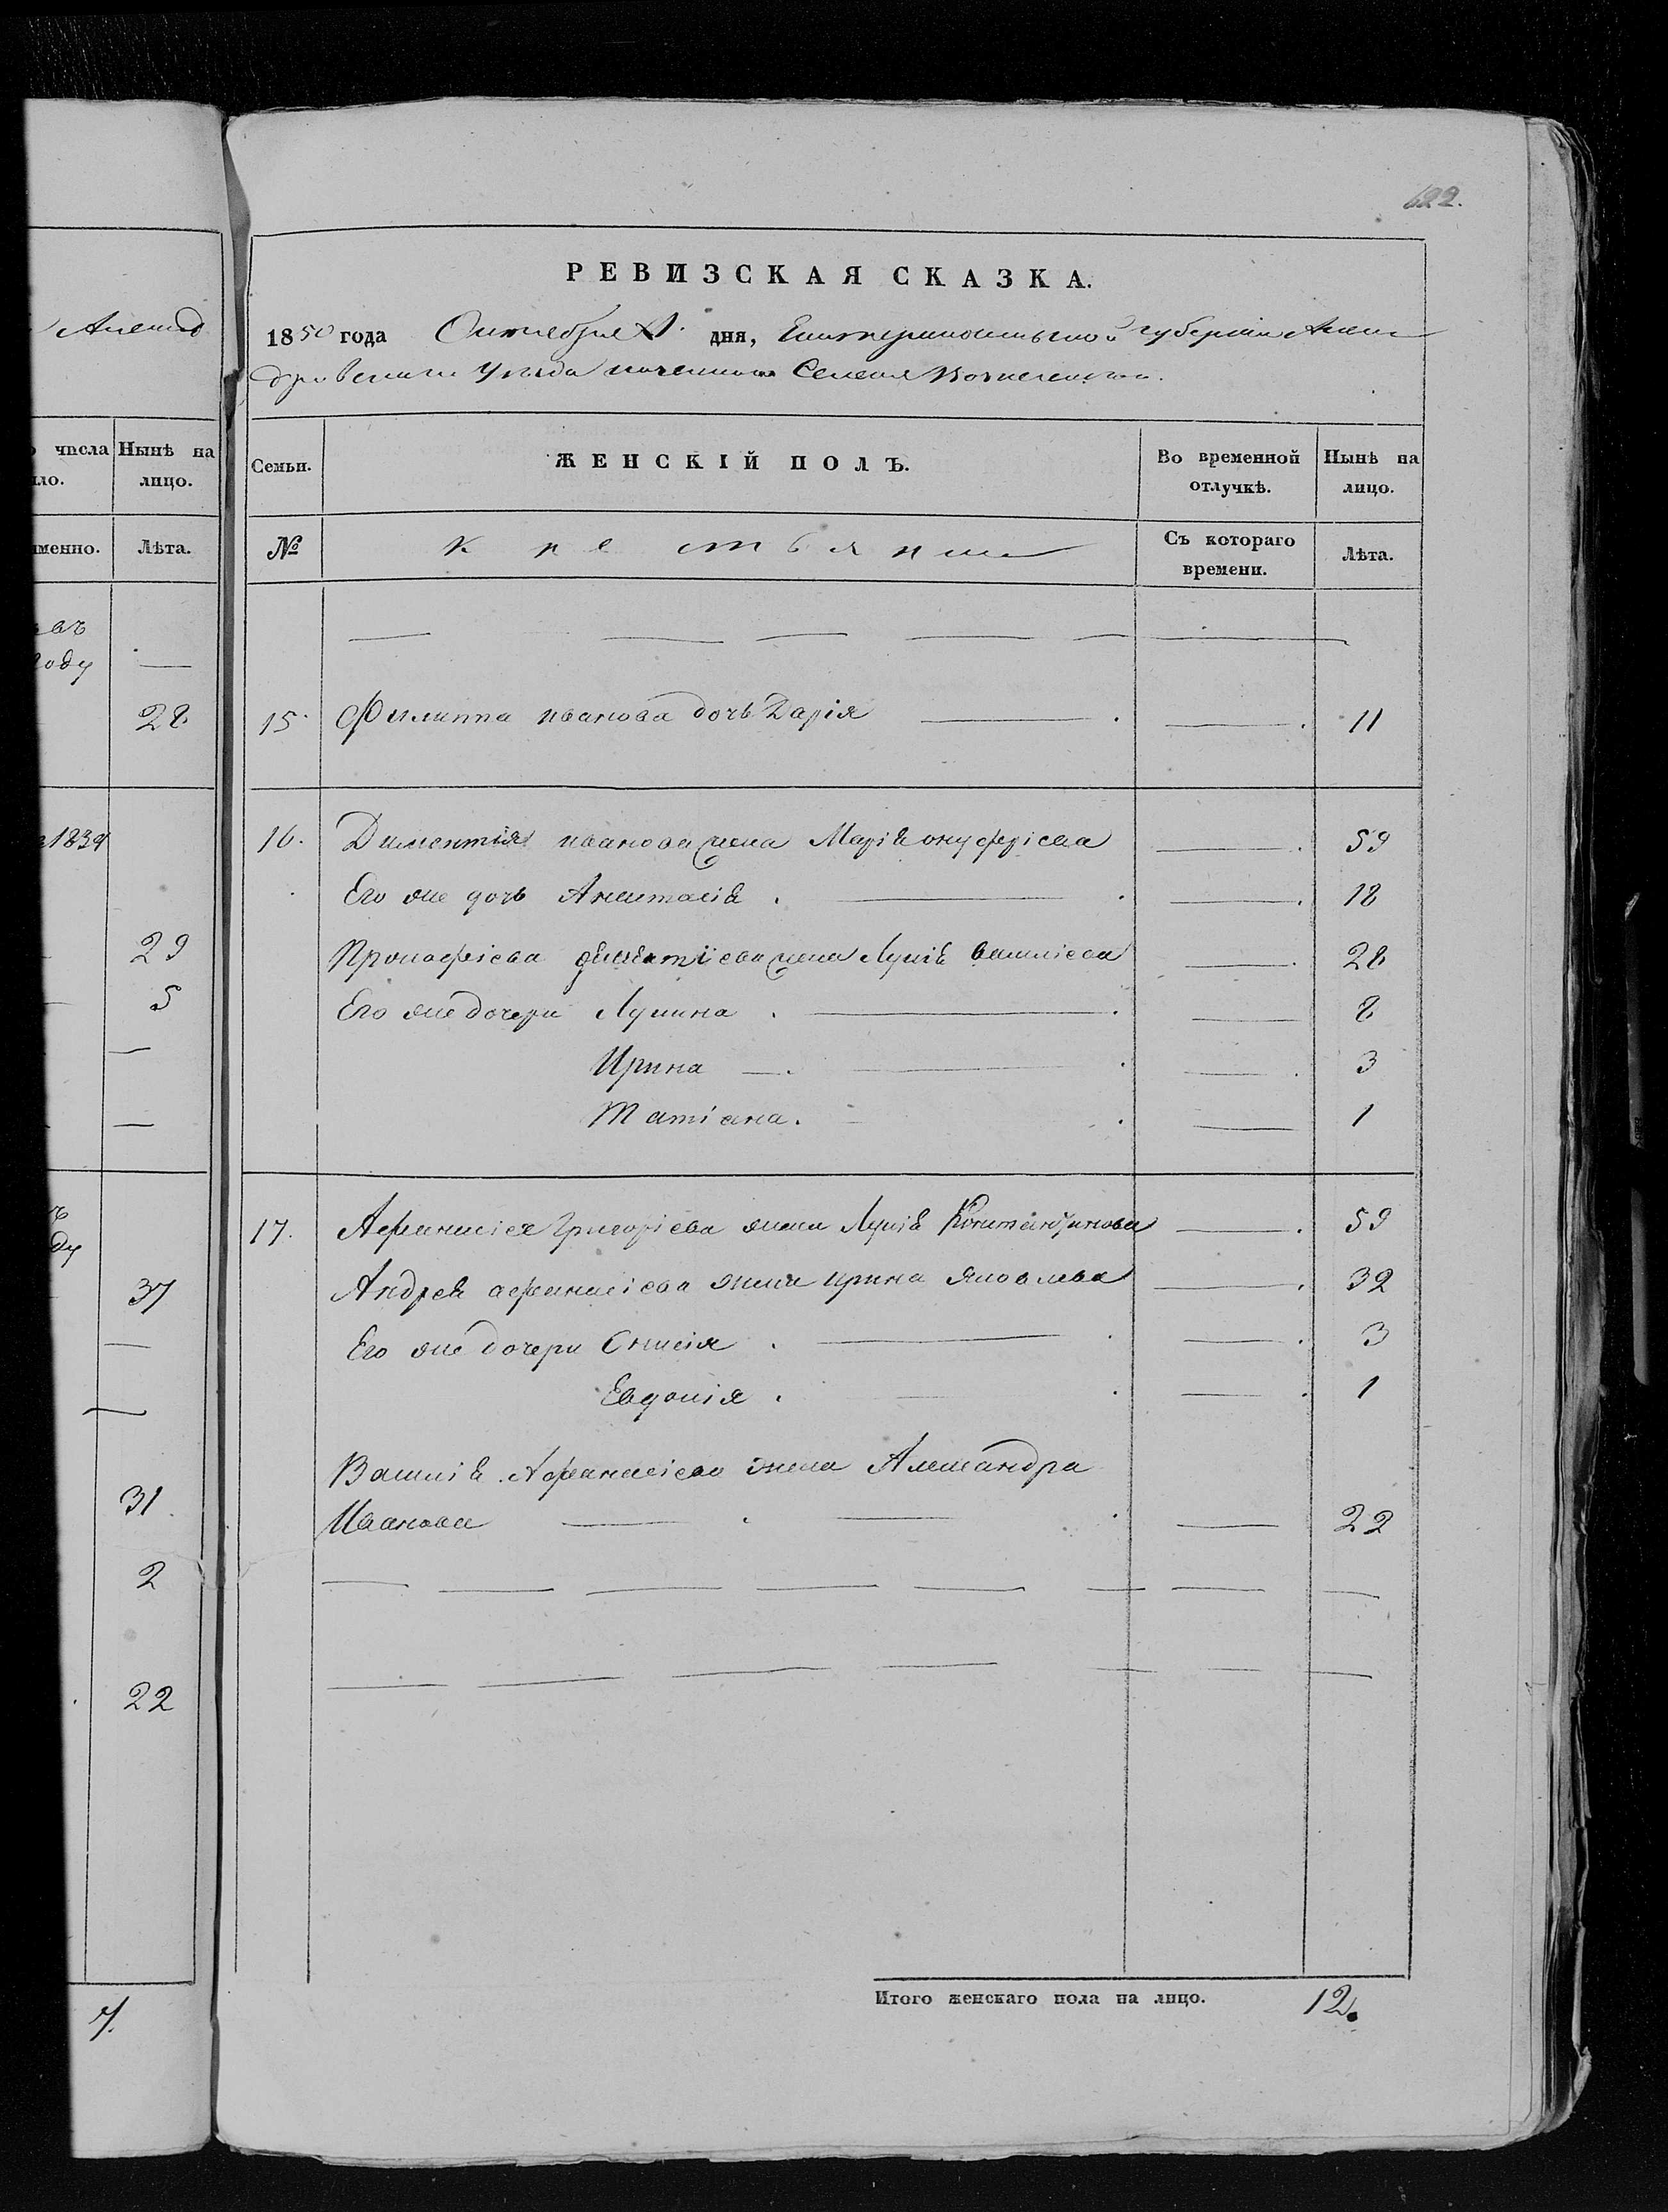 622.
РЕВИЗСКАЯ СКАЗКА.
Александ
1850 года Октября дня, Екатеринославской губернии Алексан
дровскаго Уезда казеннаго Селения Вознесенскаго.
числа Нынѣ на
ло. лицо.
Семьи. ЖЕНСКІЙ ПОЛЪ. Во временной Нынѣ на
отлучкѣ. лицо.
именно. Лѣта.
№ крестьянки Съ котораго Лѣта.
времени.
въ
году
28
15. Филиппа иванова дочь Дарія 11
1839
16. Диментія иванова жена Марія онуфріева 59
Его же дочь Анастасія. 18
29
Прокофіева диментіева жена Лукія василіева 28
5
Его же дочери Лукина. 8
Ирина 3
Татіана. 1
ду
17. Афанасія Григоріева жена Лукія Константинова 59
37
Андрея афанасіева жена ирина яковлева 32
Его же дочери Ксенія. 3
Евдокія. 1
Василія Афанасіева жена Александра
31
Иванова 22
2
22
Итого женскаго пола на лицо. 12.
7.